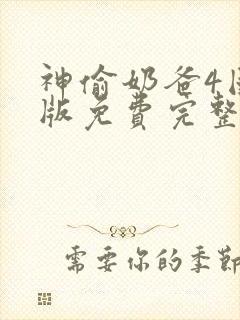 神偷奶爸4
版免费完整
需要你的季